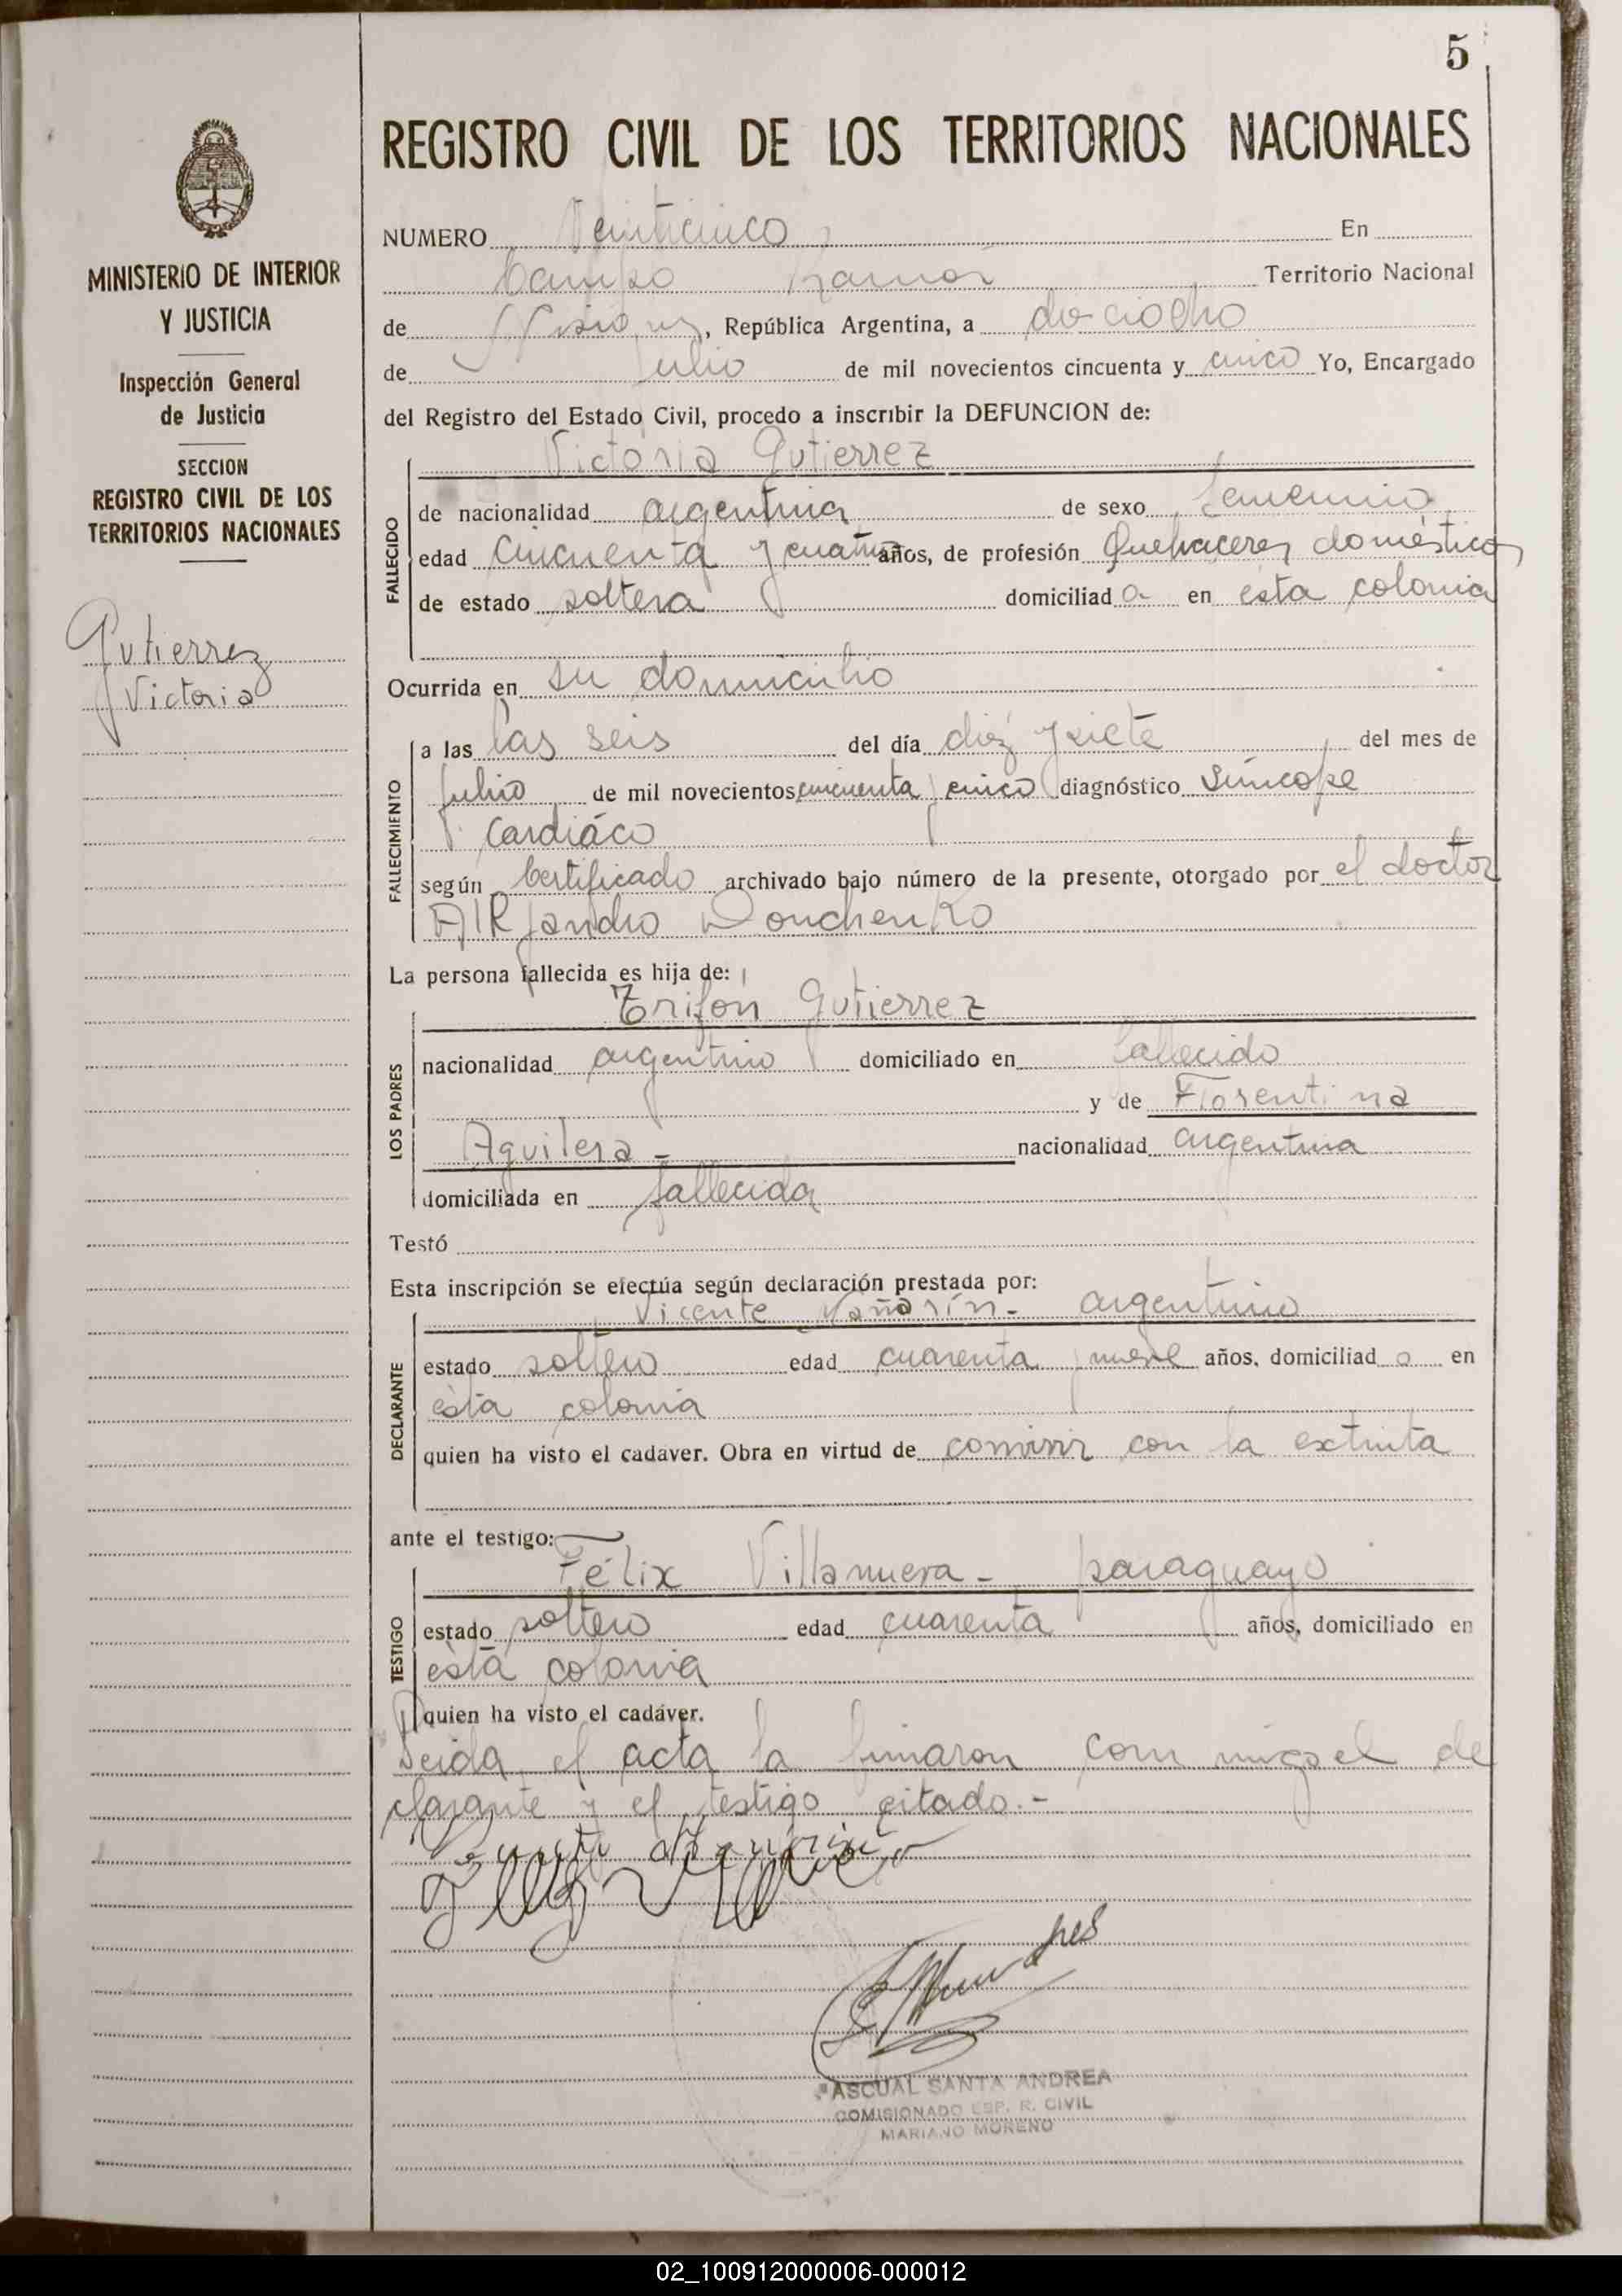 5
REGISTRO CIVIL DE LOS TERRITORIOS NACIONALES
MINISTERIO DE INTERIOR
Y JUSTICIA
Inspección General
de Justicia
SECCION
REGISTRO CIVIL DE LOS
TERRITORIOS NACIONALES
Gutierrez
Victoria
NUMERO Veinticinco En
Campo Ramón Territorio Nacional
de Misiones, República Argentina, a dieciocho
de Julio de mil novecientos cincuenta y cinco Yo, Encargado
del Registro del Estado Civil, procedo a inscribir la DEFUNCION de:
Victoria Gutierrez
FALLECIDO
de nacionalidad argentina de sexo femenino
edad cincuenta y cuatro años, de profesión Quehaceres domésticos
de estado soltera domiciliad a en ésta colonia
Ocurrida en su domicilio
FALLECIMIENTO
a las las seis del día diez y siete del mes de
julio de mil novecientos cincuenta y cinco diagnóstico Síncope
cardiáco
según Certificado archivado bajo número de la presente, otorgado por el doctor
La persona fallecida es hija de:
LOS PADRES
Trifón Gutierrez
nacionalidad argentino domiciliado en fallecido
y de Florentina
Aguilera - nacionalidad argentina
domiciliada en fallecida
Testó
Esta inscripción se efectúa según declaración prestada por:
DECLARANTE
Vicente argentino
estado soltero edad cuarenta y nueve años, domiciliad o en
ésta colonia
quien ha visto el cadáver. Obra en virtud de convivir con la extinta
ante el testigo:
TESTIGO
Félix Villanueva - paraguayo
estado soltero edad cuarenta años, domiciliado en
ésta colonia
quien ha visto el cadáver.
Leida el acta la firmaron conmigo el de
clarante y el testigo citado.-
PASCUAL SANTA ANDREA
COMISIONADO ESP. R. CIVIL
MARIANO MORENO
02_100912000006-000012